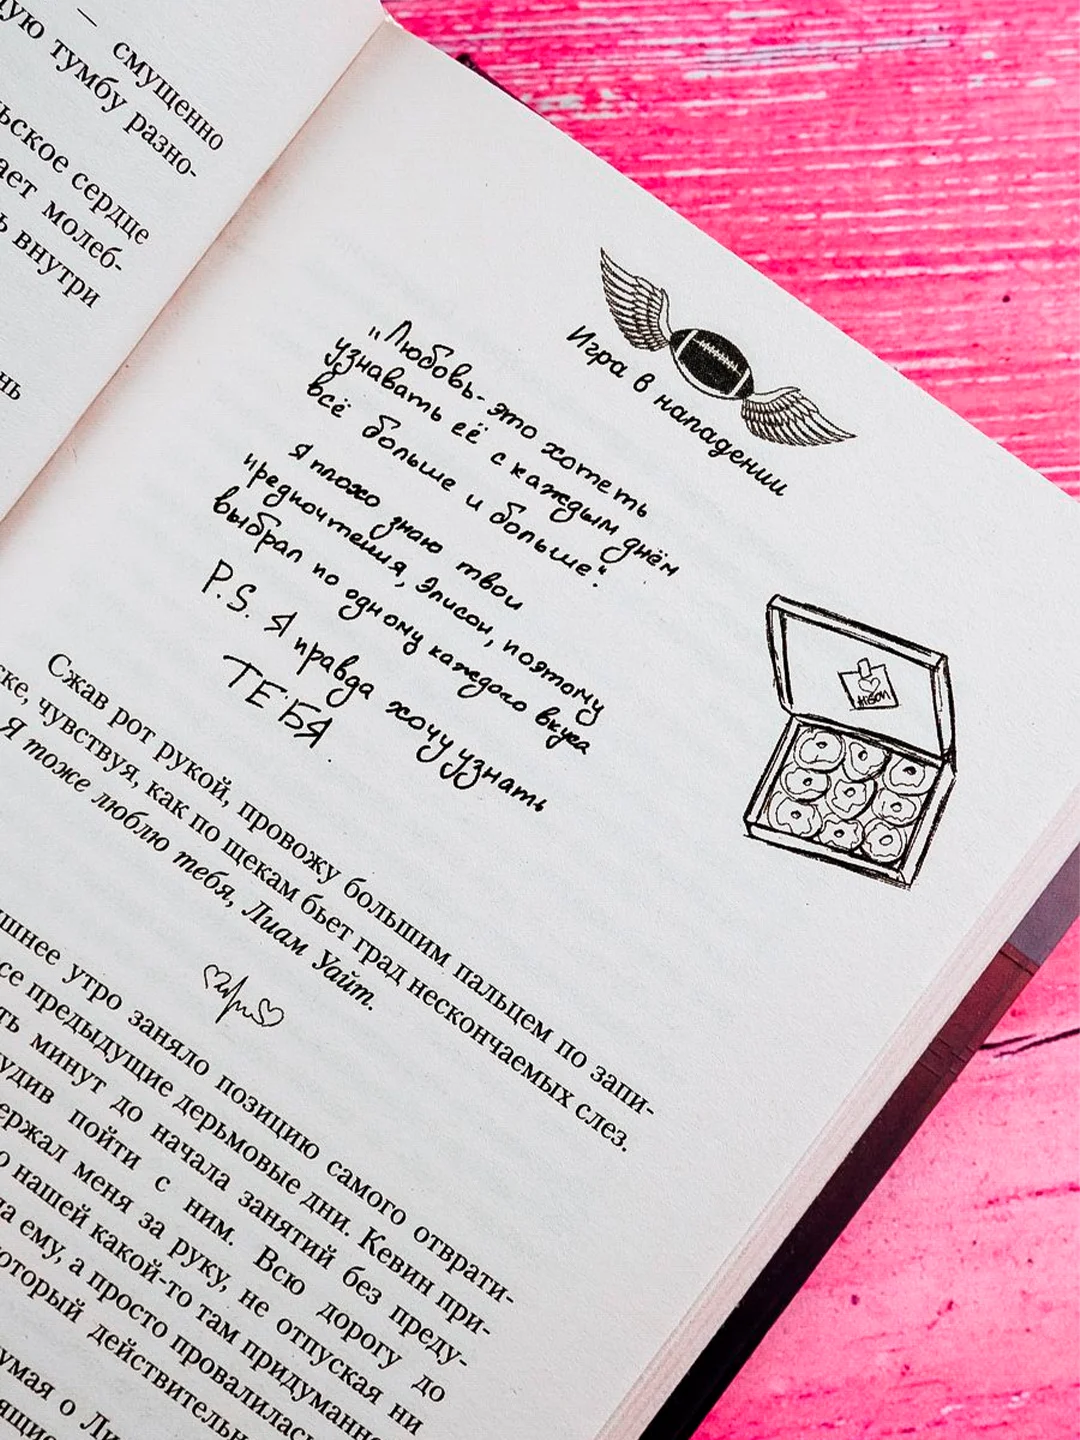 — смущенно
ую тумбу разно-
ьское сердце
ает молеб-
ь внутри
нь
Игра в нападении
„Любовь - это хотеть
узнавать её с каждым днём
всё больше и больше".
Я плохо знаю твои
предпочтения, Элисон, поэтому
выбрал по одному каждого вкуса
P.S. Я правда хочу узнать
ТЕБЯ
Alison
Сжав рот рукой, провожу большим пальцем по запи-
ске, чувствуя, как по щекам бьет град нескончаемых слез.
Я тоже люблю тебя, Лиам Уайт.
шнее утро заняло позицию самого отврати-
се предыдущие дерьмовые дни. Кевин при-
ть минут до начала занятий без преду-
удив пойти с ним. Всю дорогу до
ержал меня за руку, не отпуская ни
о нашей какой-то там придуманно
ла ему, а просто провалилась
который действительн
умая о Ли
ящие